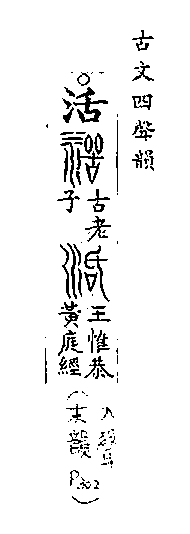 古文四聲韻
活
古老子
王惟恭黃庭經
(末韻 入
P302)